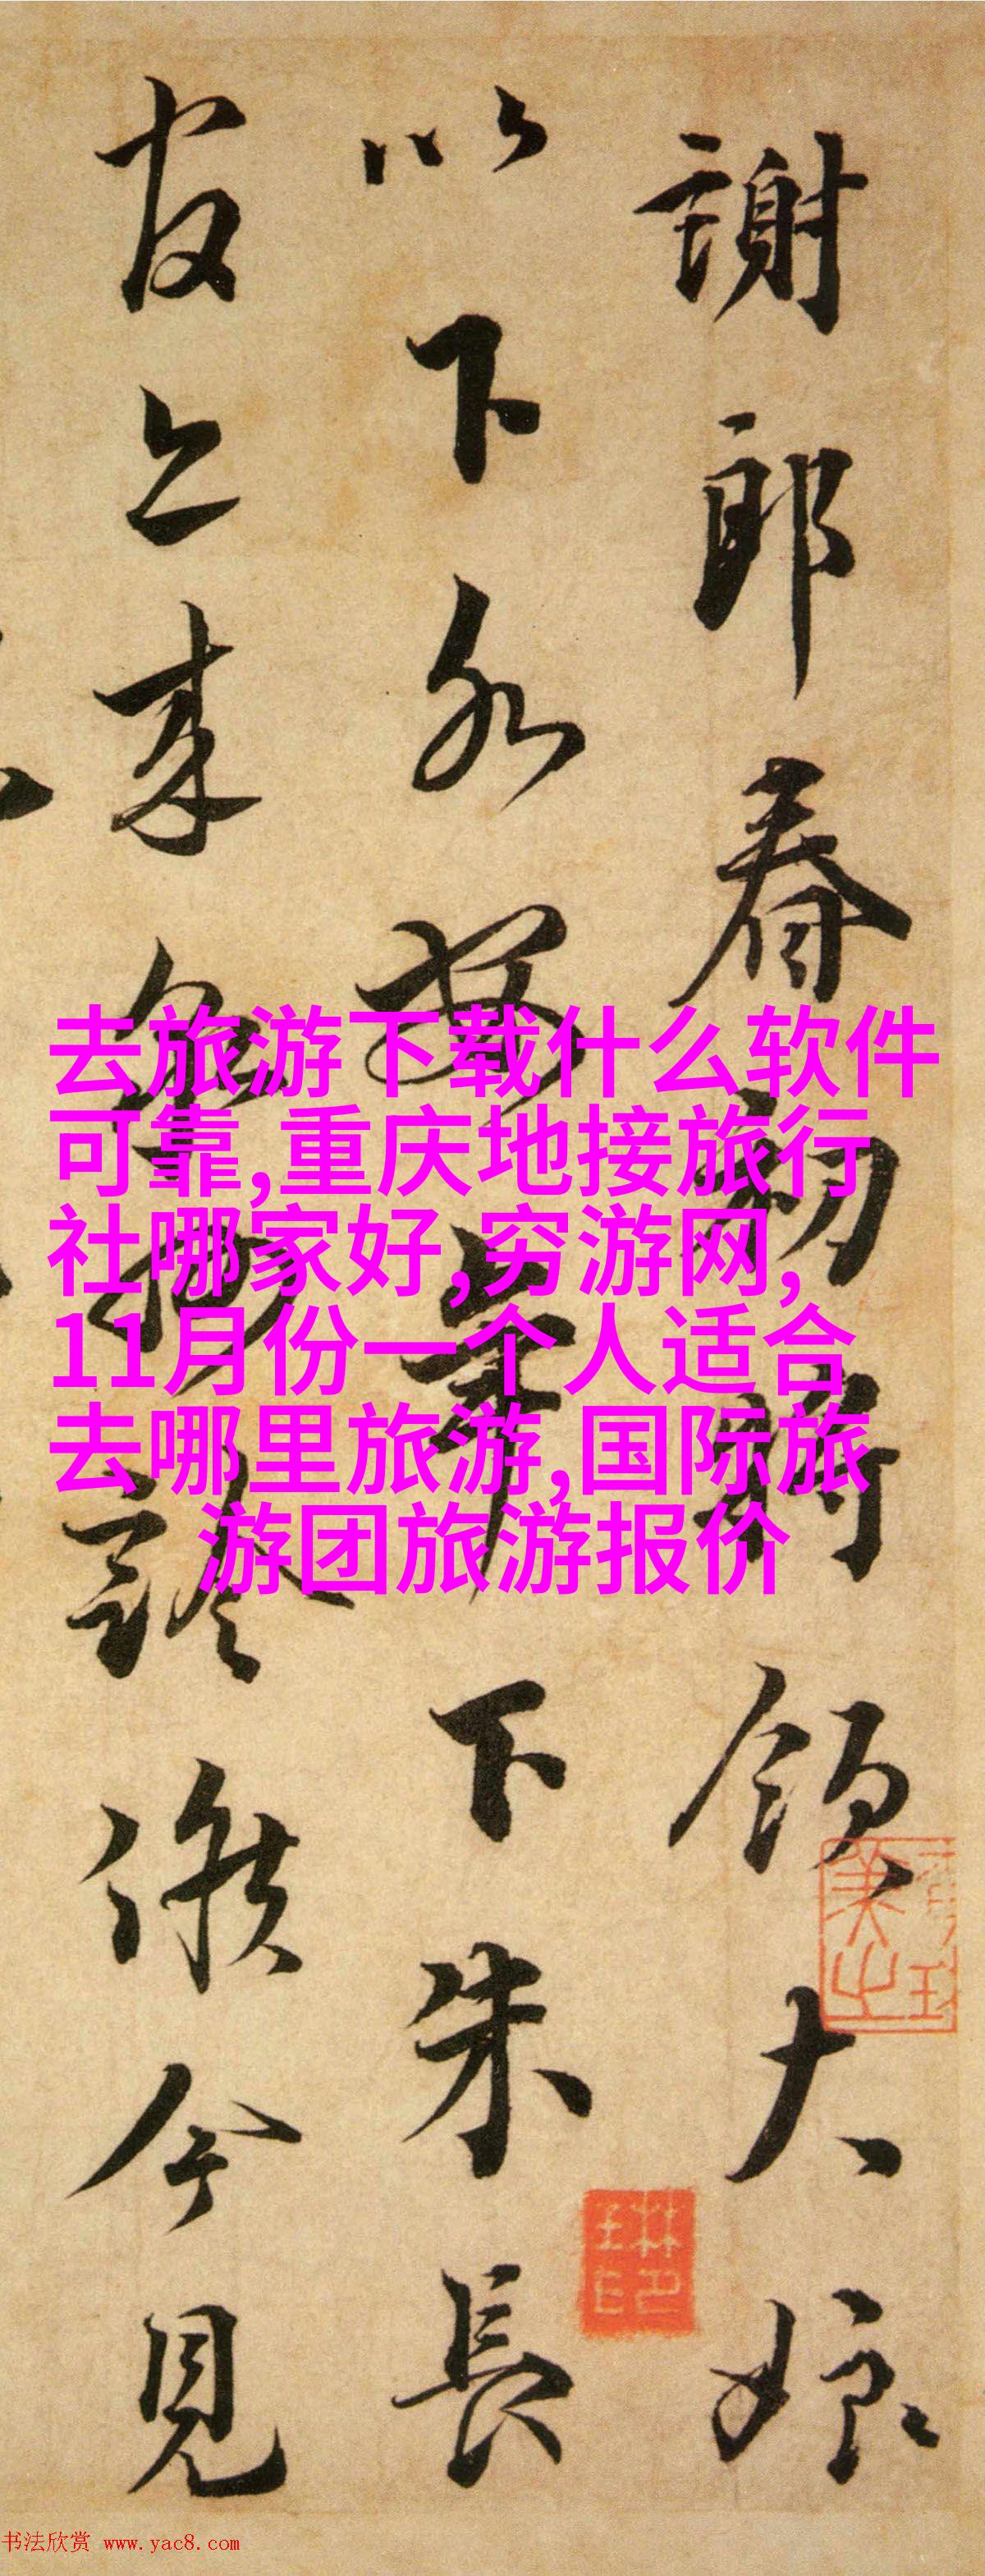 謝郎春初將領大娘
以下永
下朱長
友之來
今見
去旅游下载什么软件
可靠,重庆地接旅行
社哪家好,穷游网,
11月份一个人适合
去哪里旅游,国际旅
游团旅游报价
书法欣赏 www.yac8.com